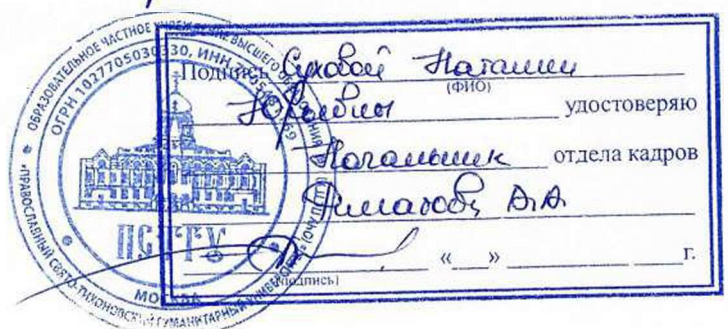 Подпись Суховой Наталии
(ФИО)
Юрьевны удостоверяю
Начальник отдела кадров
А.А.
(подпись) «__» г.
ОБРАЗОВАТЕЛЬНОЕ ЧАСТНОЕ УЧРЕЖДЕНИЕ ВЫСШЕГО ОБРАЗОВАНИЯ
«ПРАВОСЛАВНЫЙ СВЯТО-ТИХОНОВСКИЙ ГУМАНИТАРНЫЙ УНИВЕРСИТЕТ»
ОГРН ИНН
ПСТГУ
МОСКВА